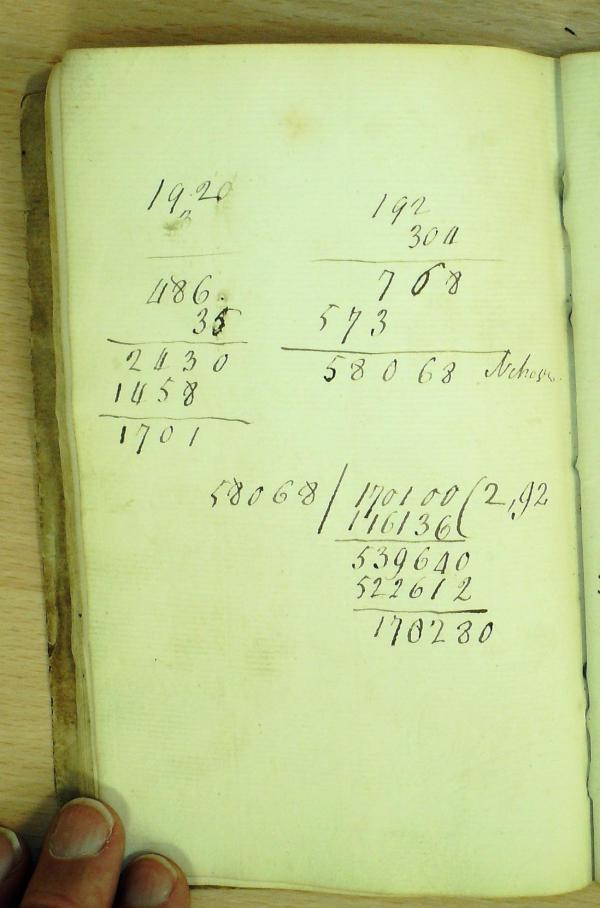 1920
3
486.
35
2430
1458
1701
192
304
768
573
58068
58068 / 170100 ( 2,92
116136
539640
522612
170280